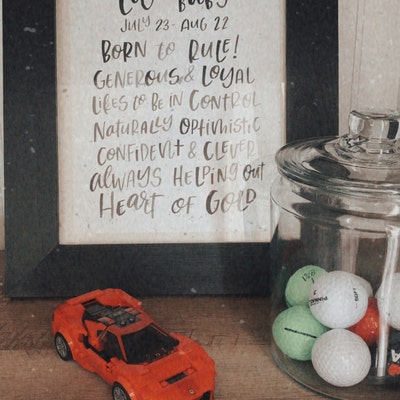 Leo Baby
JULY 23 - AUG 22
BORN to RULE!
GENEROUS & LOYAL
LIKES TO BE IN CONTROL
NATURALLY OPTIMISTIC
CONFIDENT & CLEVER
ALWAYS HELPING OUT
HEART OF GOLD